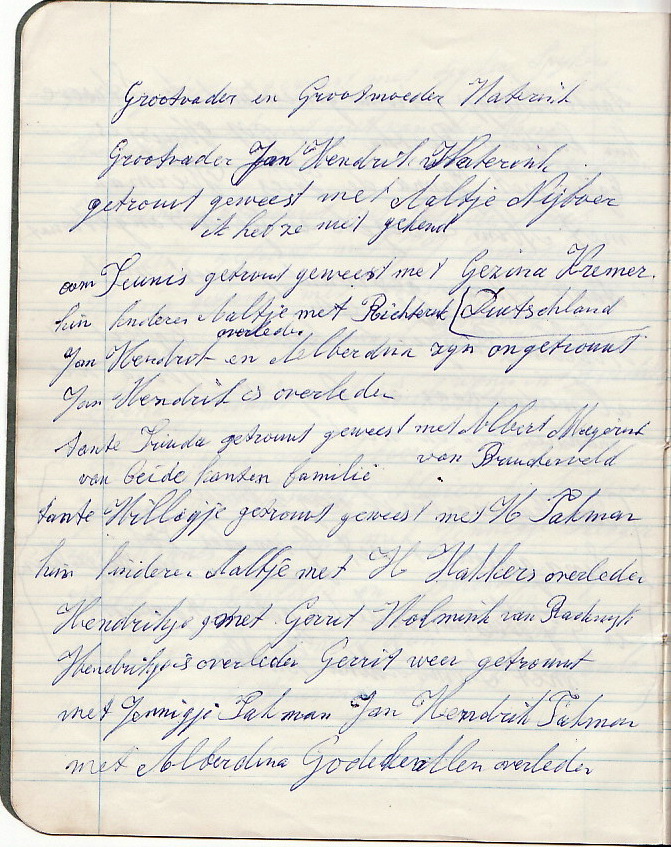 Grootvader en Grootmoeder Waterink
Grootvader Jan Hendrik Waterink
getrouwt geweest met Aaltje Nijboer
ik heb ze niet gekend
oom Teunis getrouwt geweest met Gezina Kremer.
hun kinderen Aaltje met Richterink (Duitschland
overleden
Jan Hendrik en Alberdina zijn ongetrouwt
Jan Hendrik is overleden
tante getrouwt geweest met Albert Meijerink
van beide kanten familie van Branderveld
tante Willegje getrouwt geweest met H Takman
hun kinderen Aaltje met H Walkers overleden
Hendrikje met Gerrit Wolmink van
Hendrikje is overleden Gerrit weer getrouwt
met Jennigje Takman Jan Hendrik Takman
met Alberdina overleden